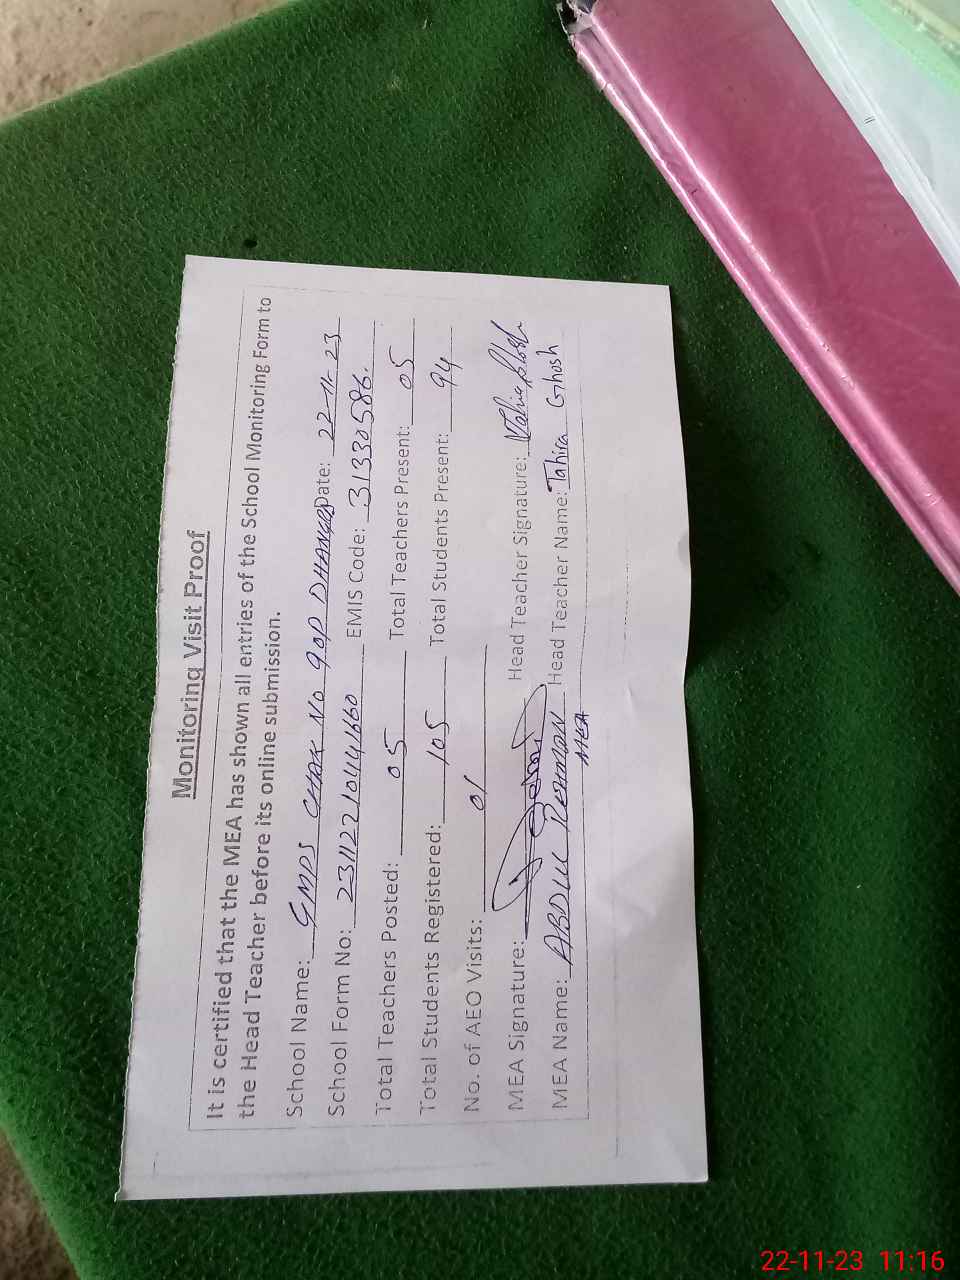 Monitoring Visit Proof
It is certified that the MEA has shown all entries of the School Monitoring Form to
the Head Teacher before its online submission.
School Name: GMPS CHAK NO 90P DHANGO Date: 22-11-23
School Form No: 23112210441660 EMIS Code: 31330586.
Total Teachers Posted: 05 Total Teachers Present: 05
Total Students Registered: 105 Total Students Present: 94
No. of AEO Visits: 01
MEA Signature: Head Teacher Signature:
MEA Name: ABDUL REHMAN Head Teacher Name: Tahira Ghosh
MEA
22-11-23 11:16